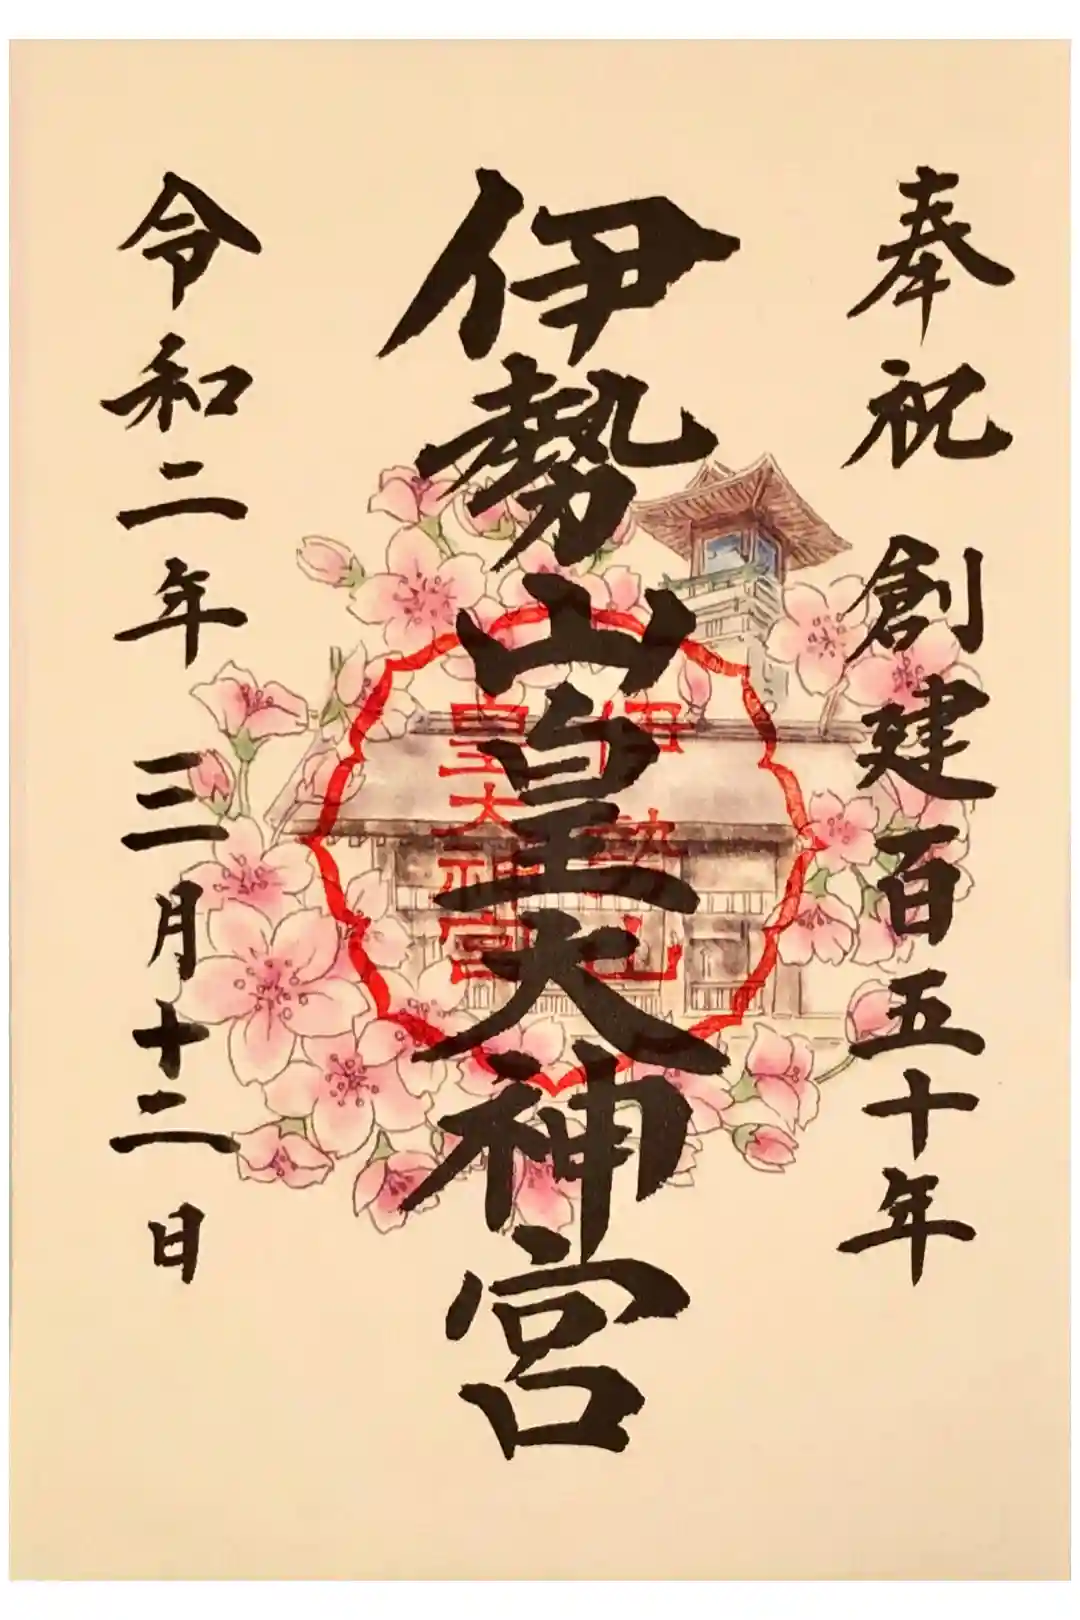 奉祝 創建百五十年
伊勢山皇大神宮
伊勢山
皇大神宮
令和二年三月十二日